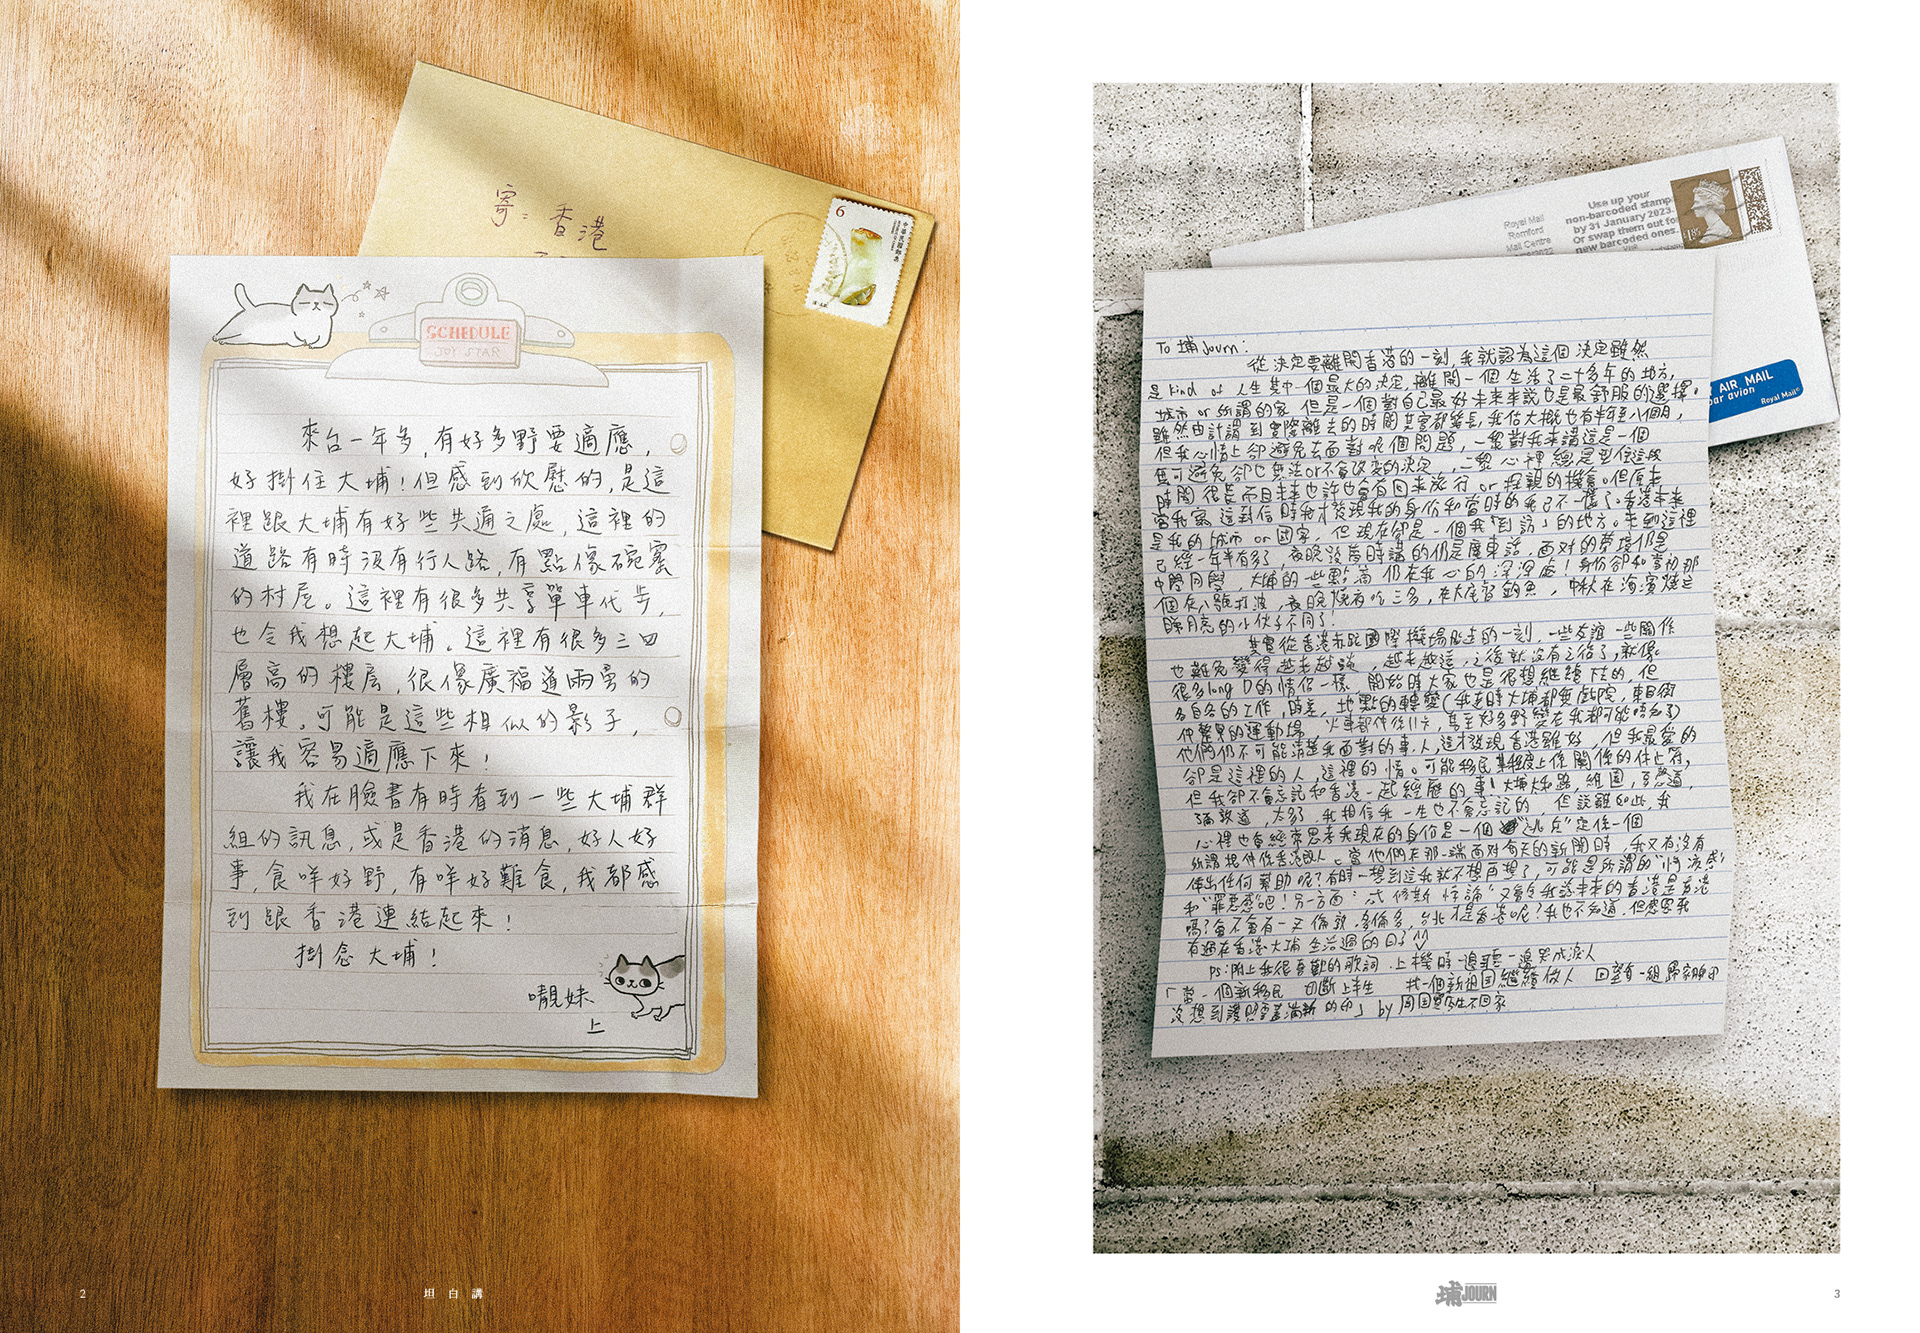 寄：香港
6
中華民國郵票
SCHEDULE
JOY STAR
來台一年多，有好多野要適應，
好掛住大埔！但感到欣慰的，是這
裡跟大埔有好些共通之處，這裡的
道路有時沒有行人路，有點像碗窰
的村屋。這裡有很多共享單車代步，
也令我想起大埔。這裡有很多三四
層高的樓房，很像廣福道兩旁的
舊樓。可能是這些相似的影子，
讓我容易適應下來！
我在臉書有時看到一些大埔群
組的訊息，或是香港的消息，好人好
事，食咩好野，有咩好難食，我都感
到跟香港連結起來！
掛念大埔！
嚫妹
上
2
坦白講
Royal Mail
Romford
Mail Centre
Use up your
non-barcoded stamp
by 31 January 2023.
Or swap them out for
new barcoded ones.
AIR MAIL
par avion
Royal Mail
To 埔Journ：
從決定要離開香港的一刻，我就認為這個決定雖然
是kind of 人生其中一個最大的決定，離開一個生活了二十多年的地方，
城市 or 所謂的家，但是一個對自己最好未來來說也是最舒服的選擇。
雖然由計謂到實際離去的時間其實都幾長，我估大概也有半年至八個月，
但我心情上卻避免去面對呢個問題，一黎對我來講這是一個
無可避免卻也無法or不會改變的決定，二黎心裡總是覺住這段
時間很長而且未來也許也會有回來旅行 or 探親的機會。但原來
當我寫這封信時我才發現我的身份和當時的我已不一樣了。香港本來
是我的城市 or 國家，但現在卻是一個我「到訪」的地方。來到這裡
已經一年半有多了，夜晚說夢時講的仍是廣東話，面對的夢境仍是
中學同學，大埔的一些點滴仍在我心的深深處！身份卻和當初那
個在八號打波，夜晚燒夜吃三多，在大尾督釣魚，中秋在海濱燒芒
睇月亮的小伙子不同了。
其實從香港赤臘國際機場般走的一刻，一些友誼一些關係
也難免變得越來越，越來越遠，之後就沒有之後了，就像
很多long D的情侶一樣，開始時大家也是很想繼續下去的，但
各自各的工作，時差，地點的轉變（我走時大埔都無戲院，東昌街
仲整緊的運動場，火車都仲係11卡，甚至好多野變左我都可能唔知）
他們仍不可能清楚我面對的事，人，這才發現香港雖好，但我最愛的
卻是這裡的人，這裡的情。可能移民某程度上係關係的休止符，
但我卻不會忘記和香港一起經歷的事！大埔太和路，組圖，
敦道，太多了，我相信我一生也不會忘記的，但說雖如此，我
心裡也會經常思考我現在的身份是一個“逃兵”定係一個
所謂提供係香港的人。當他們在那一端面對每天的新聞時，我又有沒有
作出任何幫助呢？有時一想到這我就不想再想了，可能是所謂的“內疚感”
和“罪惡感”吧！另一方面：“忒修斯悖論”又會令我諗未來的香港是香港
嗎？會不會有一天倫敦，多倫多，台北才是香港呢？我也不知道，但感恩我
有過在香港大埔生活過的日子
PS：附上我很喜歡的歌詞，上機時一邊聽一邊哭成淚人
「當一個新移民 切斷上半生 共一個新祖國繼續做人 回望有一組野
沒想到護照蓋滿新的印」by 周國賢
埔JOURN
3